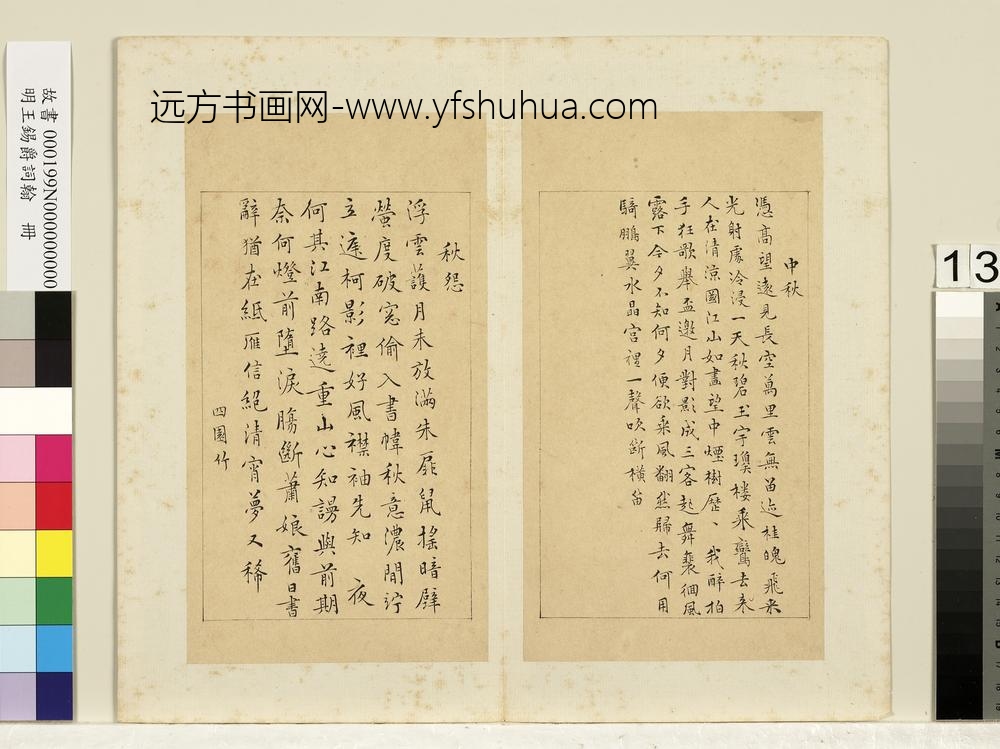 远方书画网-www.yfshuhua.com
故書000199N000000000
明王錫爵詞翰　冊
13
中秋
憑高望遠見長空萬里雲無留迹桂魄飛來
光射處冷浸一天秋碧玉宇瓊樓乘鸞去來
人在清涼國江山如畫望中煙樹歷、我醉拍
手狂歌舉盃邀月對影成三客起舞裴徊風
露下今夕不知何夕便欲乘風翻然歸去何用
騎鵬翼水晶宮裡一聲吹斷橫笛
秋怨
浮雲護月未放滿朱扉鼠搖暗壁
螢度破窓偷入書幃秋意濃閒竚
立庭柯影裡好風襟袖先知　夜
何其江南路遶重山心知謾與前期
奈何燈前墮淚腸斷蕭娘舊日書
辭猶在紙雁信絕清宵夢又稀
四園竹